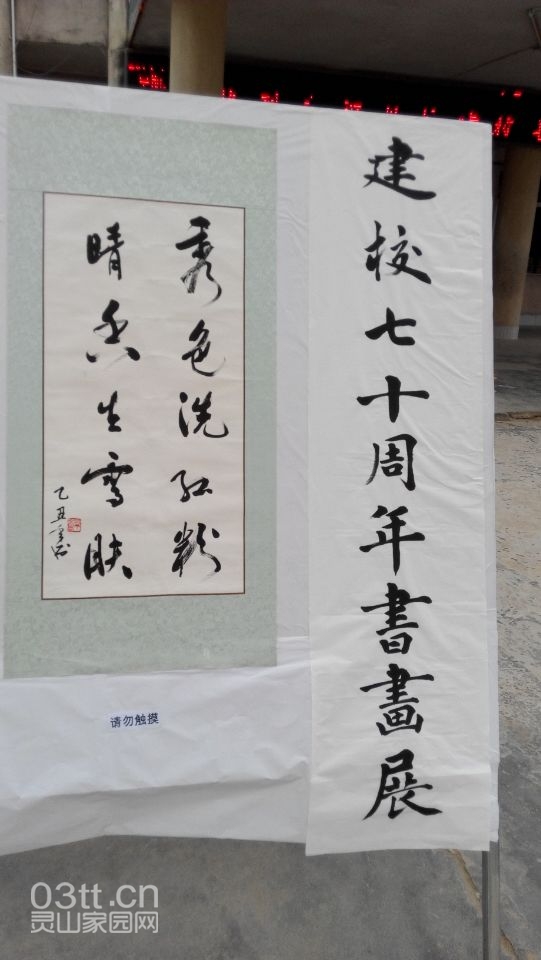 建校七十周年書畫展
秀色洗紅粉
晴香生雪肤
乙丑
请勿触摸
03tt.cn
灵山家园网